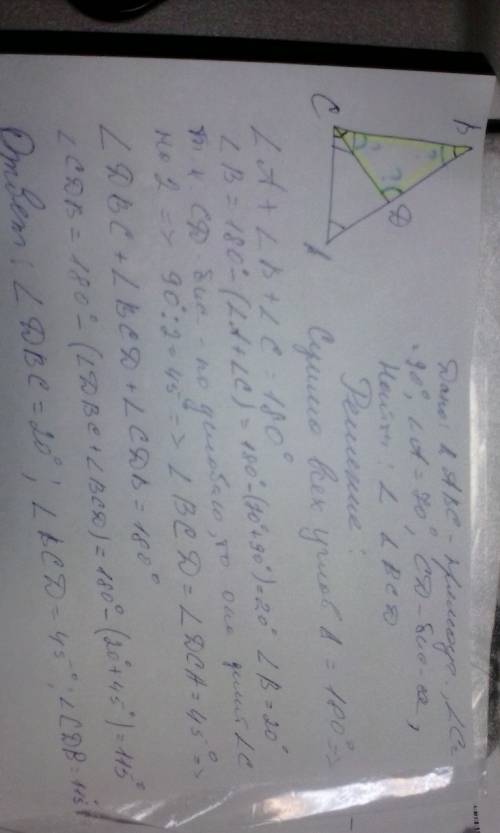 Дано: Δ ABC - прямоуг., ∠C=
=90°, ∠A=70°, CD-бис-са,
Найти: ∠ BCD
Решение:
Сумма всех углов Δ = 180° =>
∠A + ∠B + ∠C = 180°
∠B = 180° - (∠A+∠C) = 180°-(70°+90°)=20° ∠B = 20°
т.к. CD-бис - по условию, то она делит ∠C
на 2 => 90°:2=45° => ∠BCD = ∠DCA = 45° =>
∠DBC + ∠BCD + ∠CDB = 180°
∠CDB = 180° - (∠DBC+∠BCD) = 180° - (20°+45°) = 115°
Ответ: ∠DBC = 20°; ∠BCD = 45°; ∠CDB = 115°
B
D
C
A
?